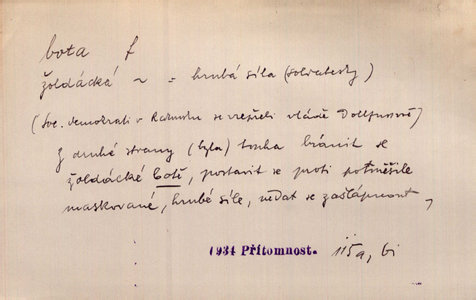 bota f
žoldácká ~ = hrubá síla (soldatesky)
(soc. demokrati v Rakousku se vzepřeli vládě Dollfussově)
Z druhé strany (byla) touha bránit se
žoldácké botě, postavit se proti potměšile
maskované, hrubé síle, nedat se zašlápnout,
1934 Přítomnost. 115a, bi